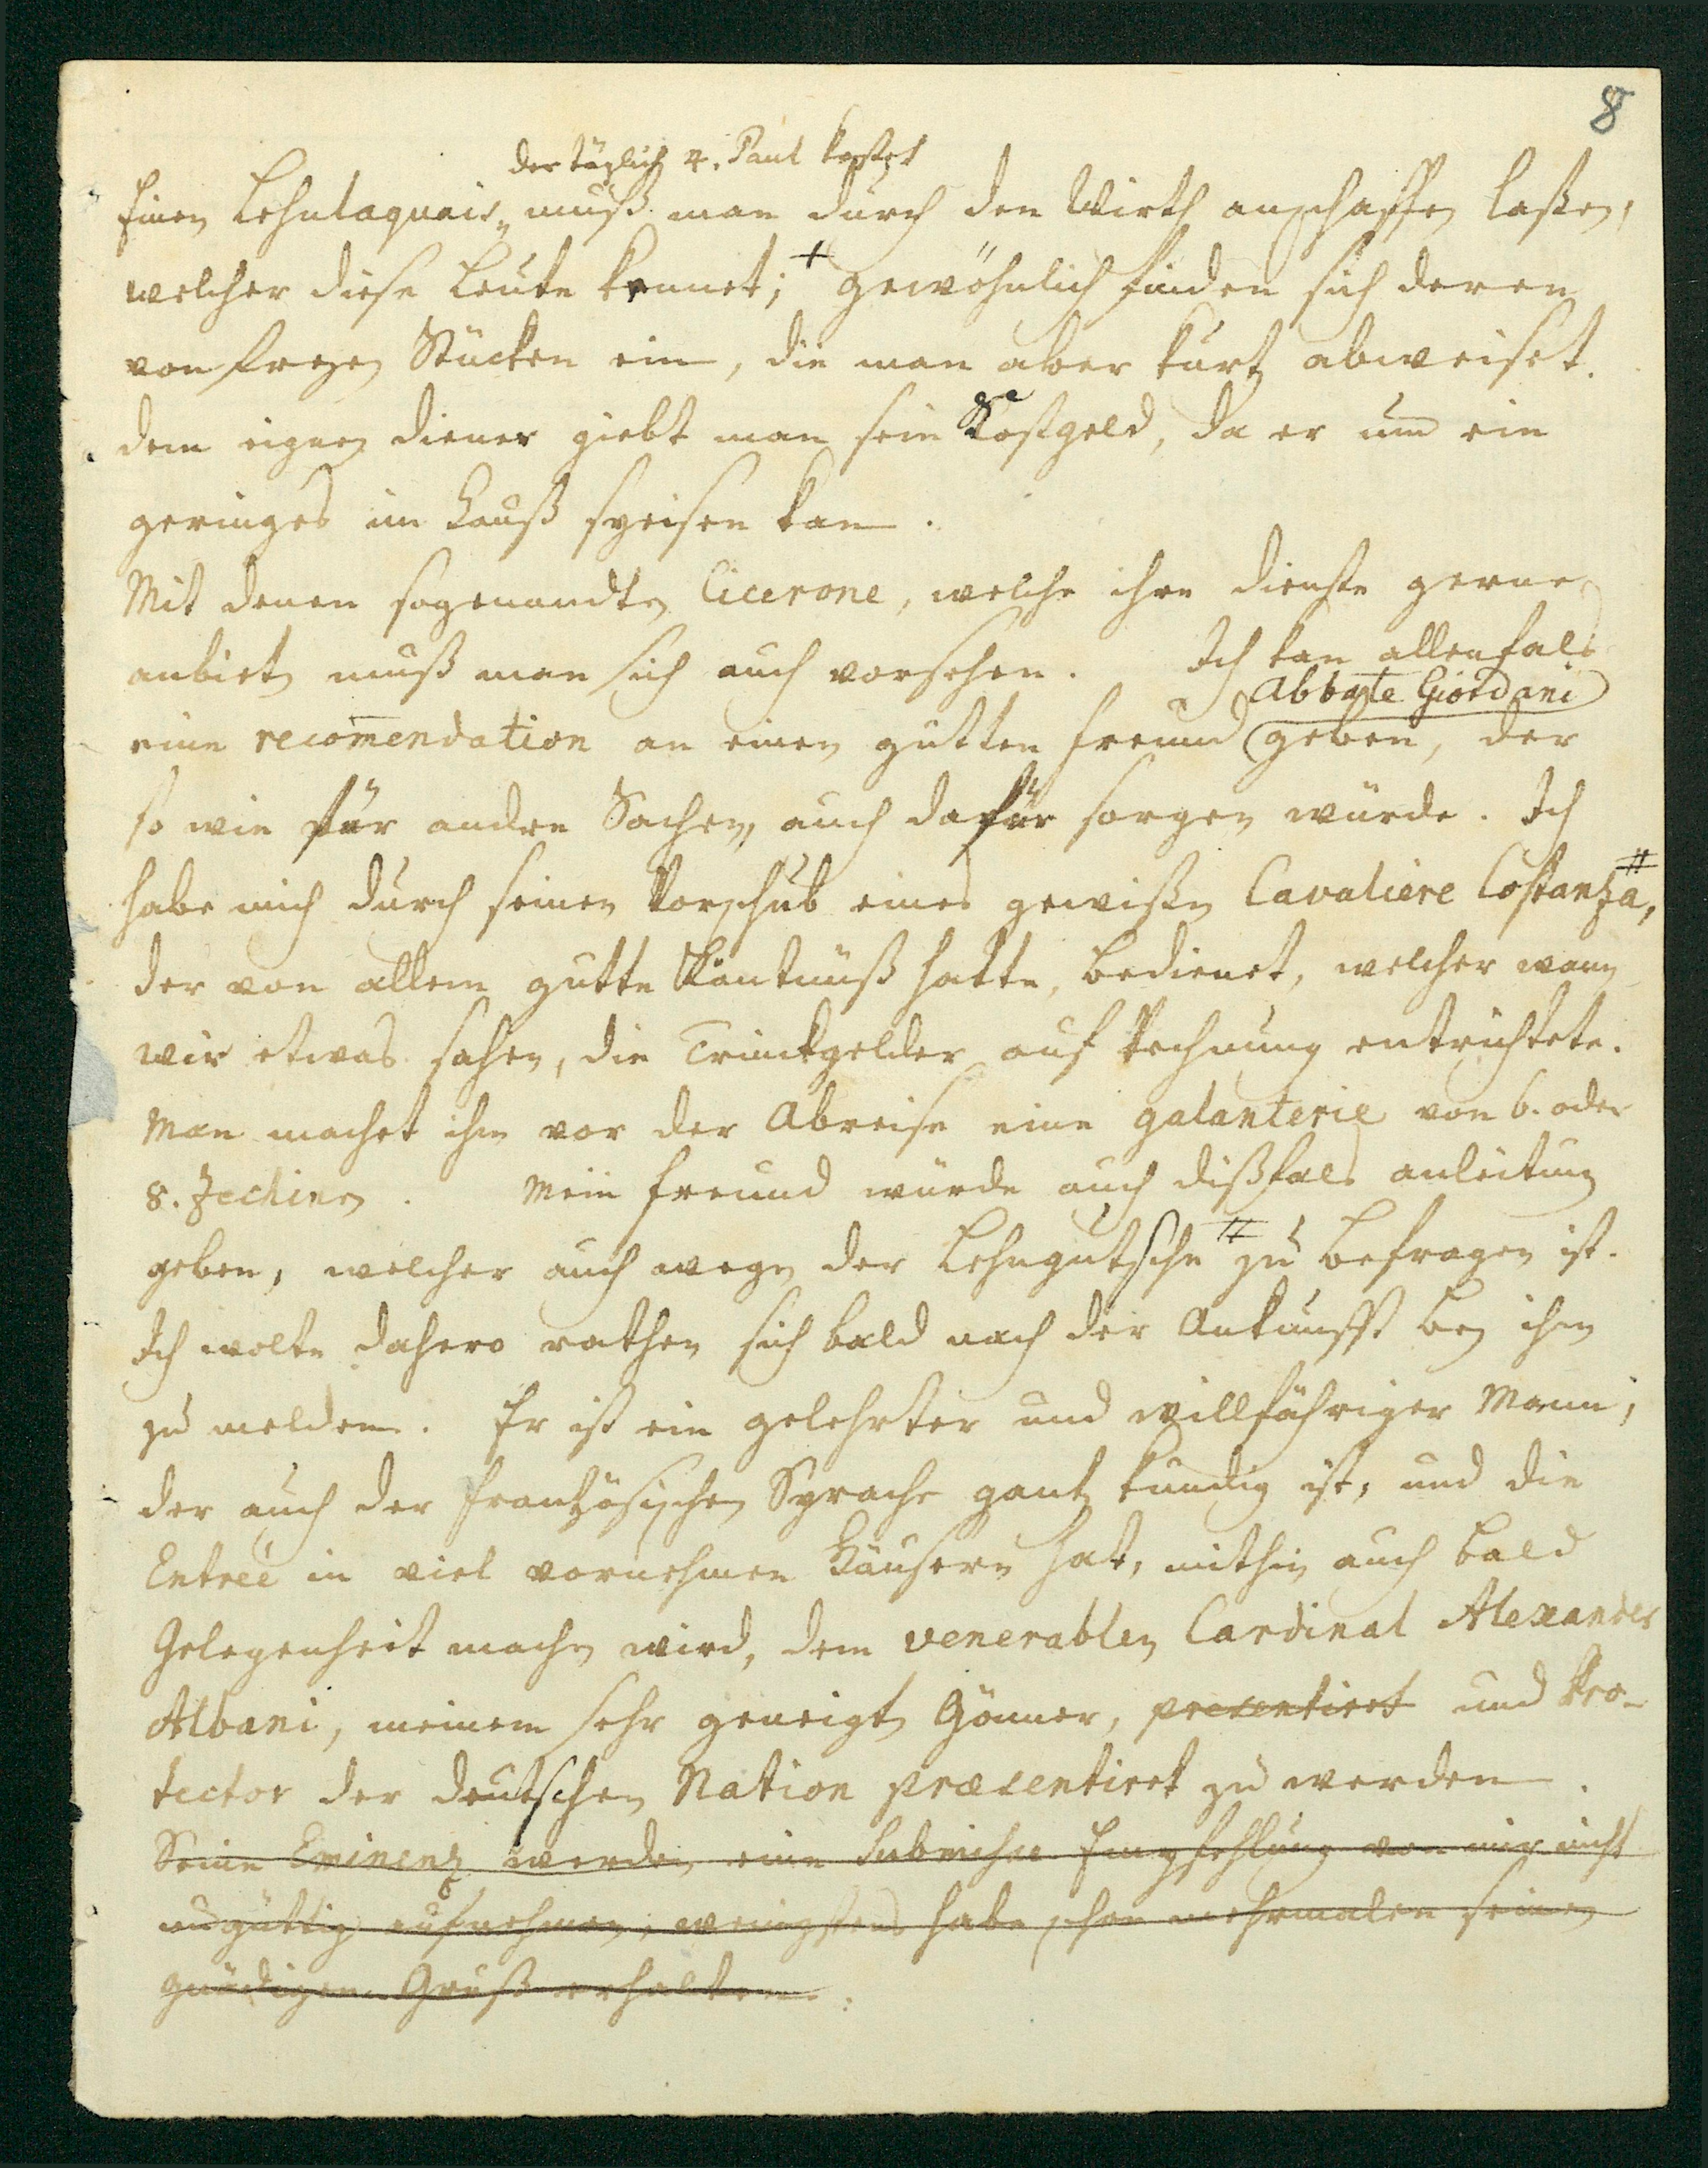 8
der täglich 4. Paul kostet
Einen Lehnlaquais„ muß man durch den Wirth anschaffen laßen,
welcher diese Leute kennet; + gewöhnlich finden sich deren
von freyen Stücken ein, die man aber kurtz abweiset.
dem eignen diener giebt man sein Kostgeld, da er um ein
geringes im Hauß speisen kan.
Mit denen sogenandten Cicerone, welche ihre dienste gerne
anbieten muß man sich auch vorsehen. Ich kan allenfals
Abbate Giordani
eine recomendation an einen gutten freund geben, der
so wie für andre Sachen, auch dafür sorgen würde. Ich
habe mich durch seinen Vorschub eines gewißen Cavaliere Costanza, #
der von allem gutte Käntnüß hatte, bedienet, welcher wann
wir etwas sahen, die Trinckgelder auf Rechnung entrichtete.
Man machet ihm vor der Abreise eine galanterie von 6. oder
8. Zechinen. Mein freund würde auch dißfals anleitung
geben, welcher auch wegen der Lehngutsche # zu befragen ist.
Ich wolte dahero rathen sich bald nach der Ankunfft bey ihm
zu melden. Er ist ein gelehrter und willfähriger Mann,
der auch der französischen Sprache gantz kundig ist, und die
Entreé in viel vornehmen Häusern hat, mithin auch bald
Gelegenheit machen wird, dem venerablen Cardinal Alexander
Albani, meinem sehr geneigten Gönner, presentiret und Pro-
tector der deutschen Nation præsentiret zu werden.
Seine Eminenz werden eine Submisse Empfehlung von mir nicht
ungüttig aufnehmen, wenigstens habe schon mehrmalen seinen
gnädigen Gruß erhalten.